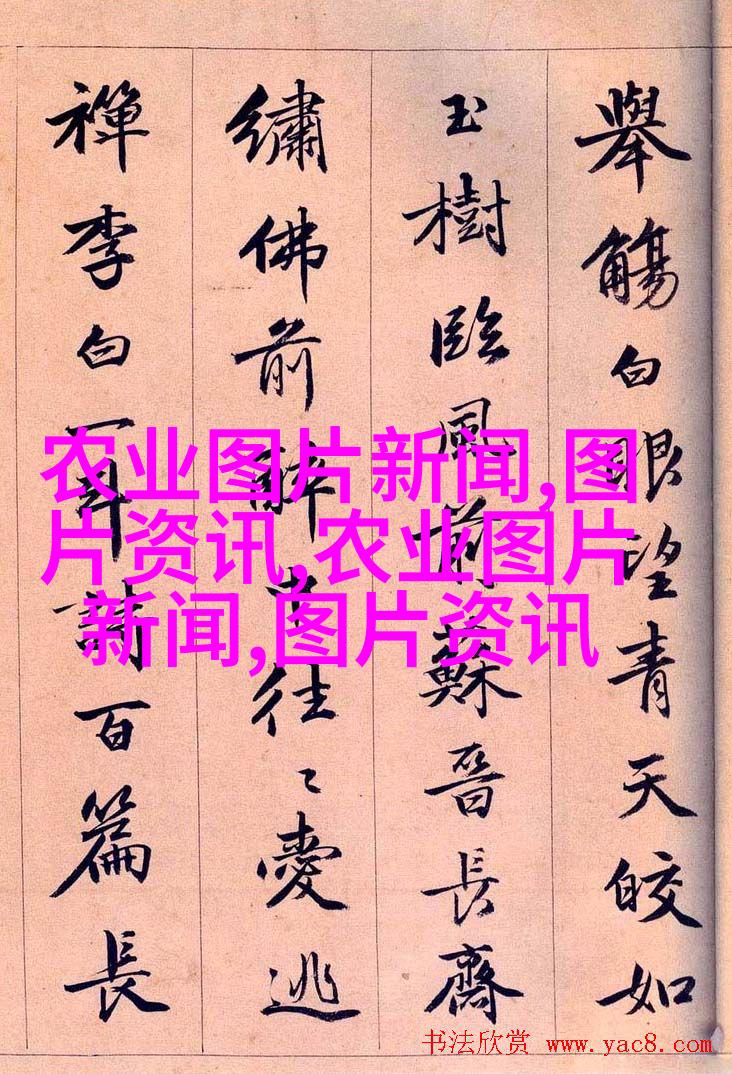 舉觴白眼望青天皎如
玉樹臨風前蘇晉長齋
繡佛前醉中往〻愛逃
禪李白一斗詩百篇長
农业图片新闻,图
片资讯,农业图片
新闻,图片资讯
书法欣赏 www.yac8.com